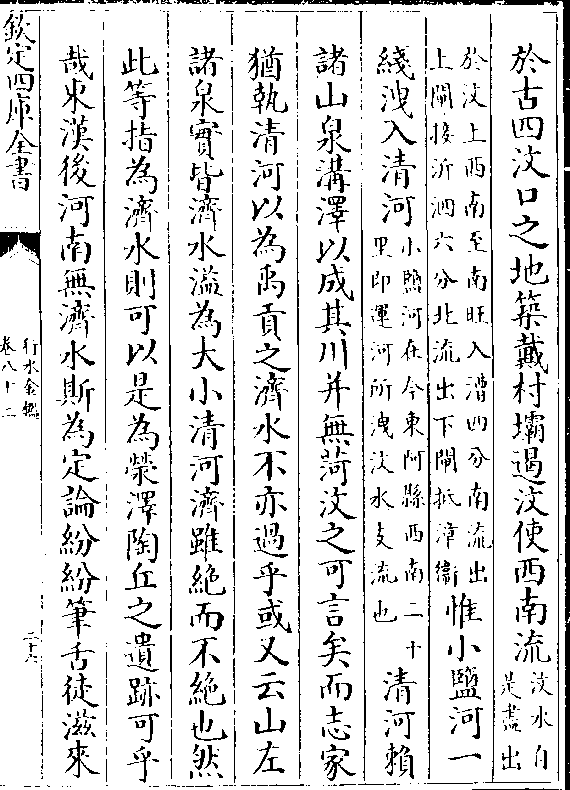 於古四汶口之地築戴村壩遏汶使西南流汶水自是盡出
於汶上西南至南旺入漕四分南流出上閘接沂泗六分北流出下閘抵漳衞惟小鹽河一
綫洩入清河小鹽河在今東阿縣西南二十里即運河所洩汶水支流也清河賴
諸山泉溝澤以成其川并無菏汶之可言矣而志家
猶執清河以為禹貢之濟水不亦過乎或又云山左
諸泉實皆濟水溢為大小清河濟雖絶而不絶也然
此等指為濟水則可以是為滎澤陶丘之遺跡可乎
哉東漢後河南無濟水斯為定論紛紛筆舌徒滋來
欽定四庫全書
行水金鑑
卷八十二
二十六